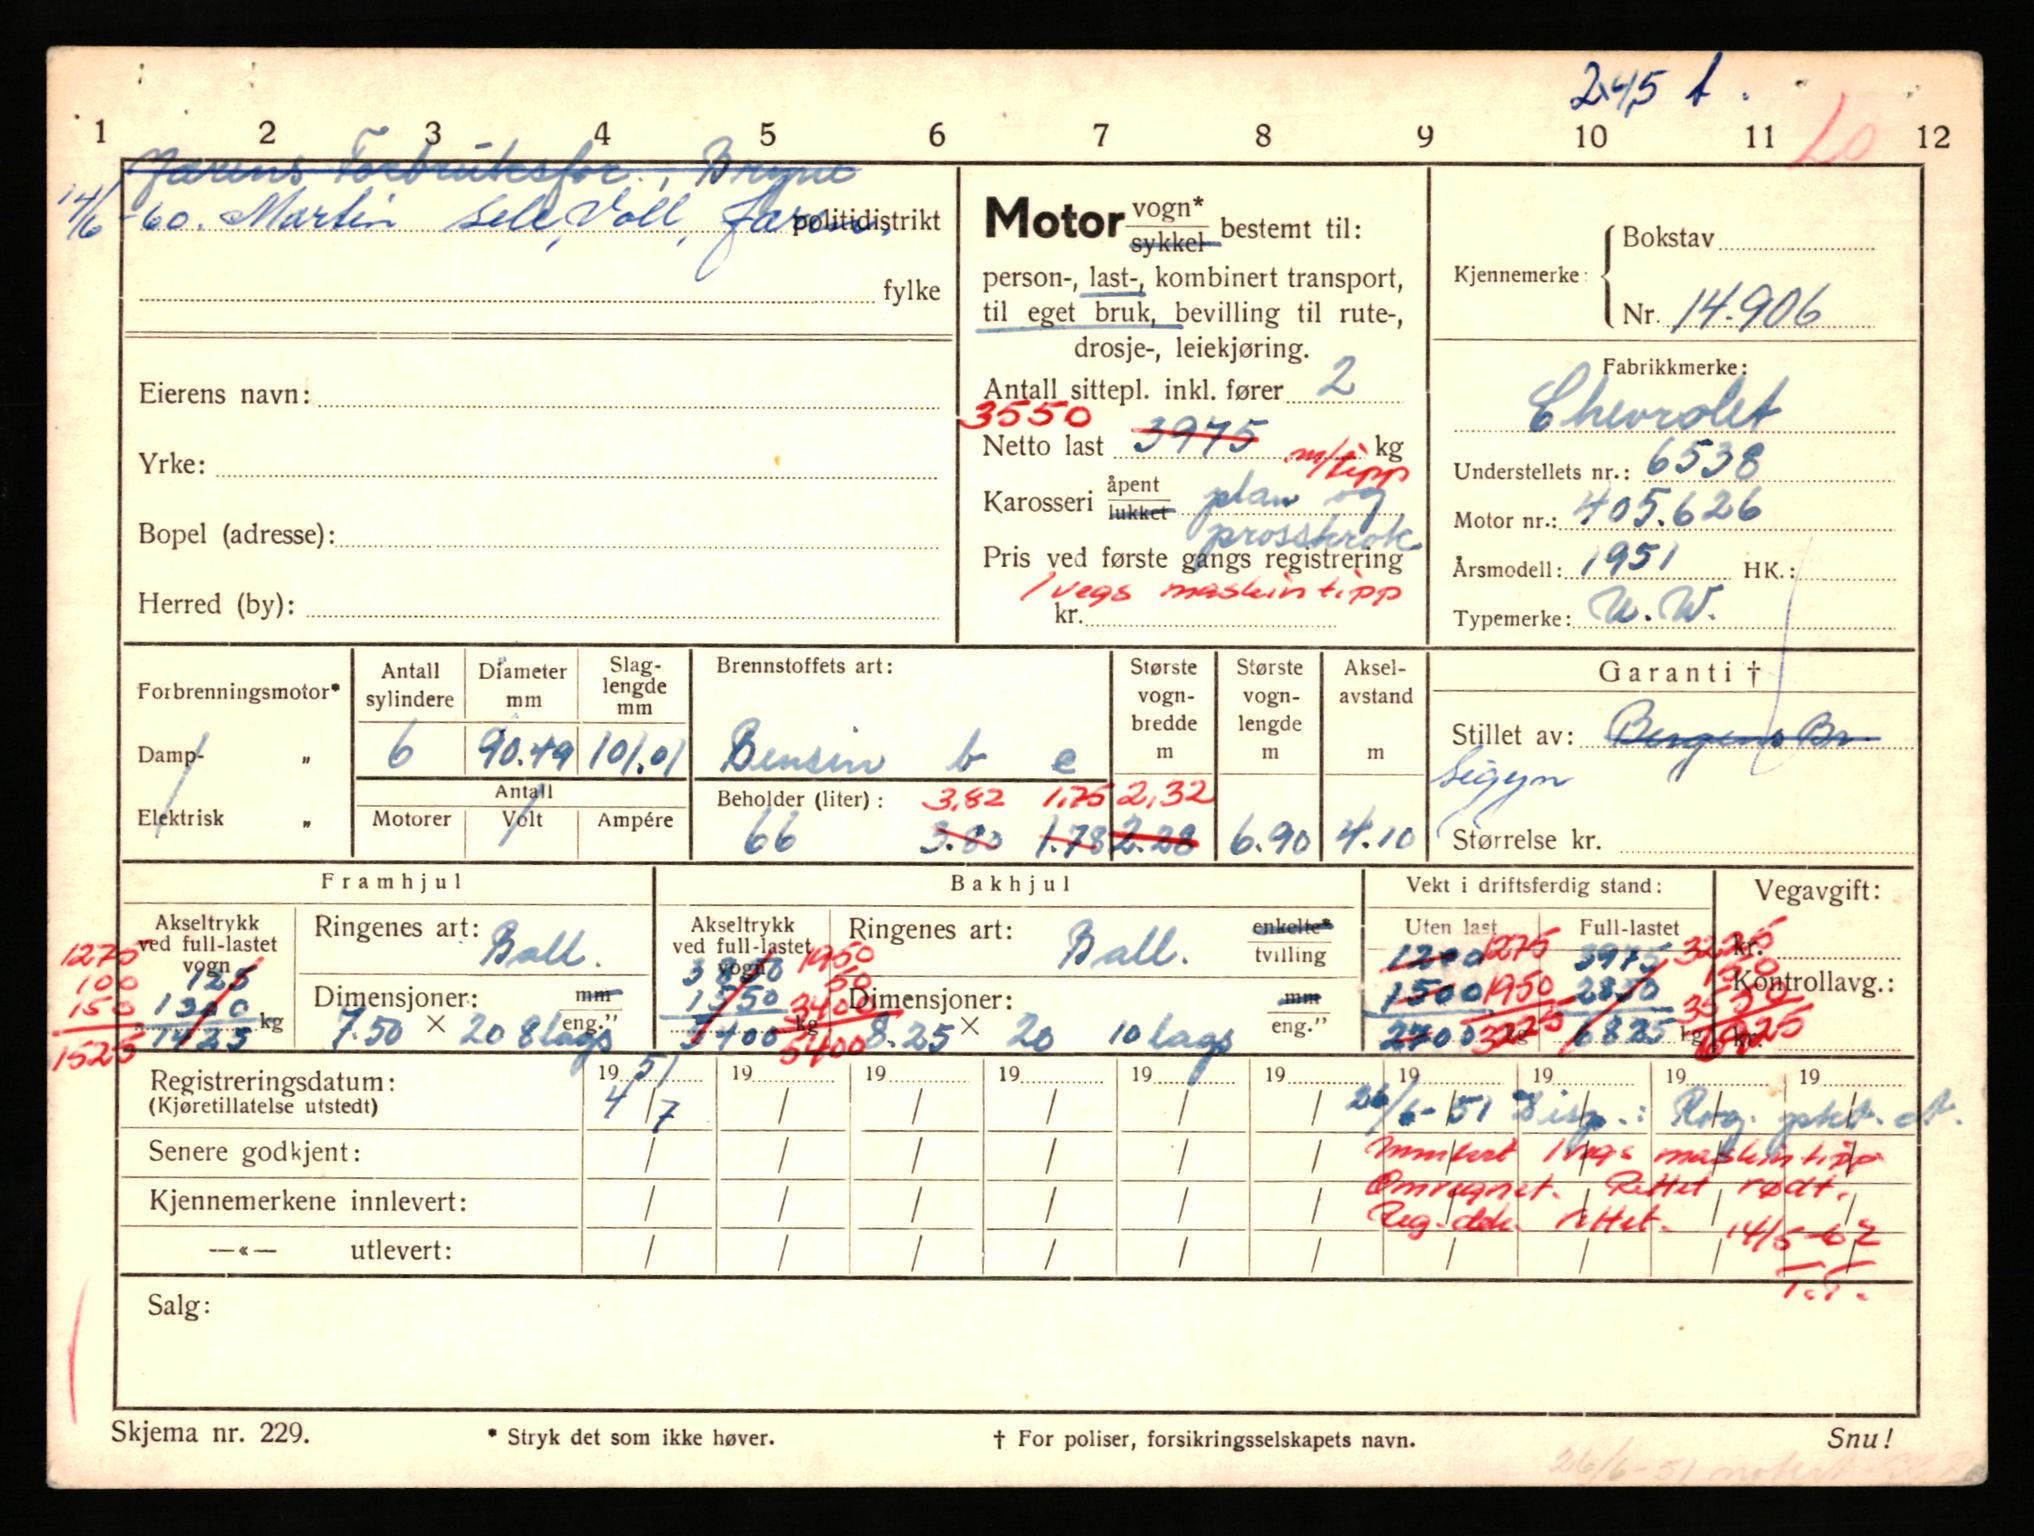 2,45 t.
1 2 3 4 5 6 7 8 9 10 11 12
Jærens Forbruksfor., Bryne
14/6-60. Martin Sele, Voll, Jæren.
politidistrikt
fylke
Eierens navn:
Yrke:
Bopel (adresse):
Herred (by):
Motor vogn* sykkel bestemt til:
person-, last-, kombinert transport,
til eget bruk, bevilling til rute-,
drosje-, leiekjøring.
Antall sittepl. inkl. fører 2
3550
Netto last 3975 kg
m/tipp
Karosseri åpent lukket plan og
prosskrok
Pris ved første gangs registrering
1 vegs maskintipp
kr.
Kjennemerke: Bokstav
Nr. 14.906
Fabrikkmerke:
Chevrolet
Understellets nr.: 6538
Motor nr.: 405.626
Årsmodell: 1951 HK.:
Typemerke: U.W.
Forbrenningsmotor*
Damp- „
Elektrisk „
Antall sylindere
6
Diameter mm
90.49
Slag-lengde mm
101.01
Antall
Motorer Volt Ampére
Brennstoffets art:
Bensin b e
Beholder (liter): 3,82 1,75
66 3.80 1.78
Største vogn-bredde m
2,32
2.28
Største vogn-lengde m
6.90
Aksel-avstand m
4.10
Garanti †
Stillet av: Bergens Br
Sigyn
Størrelse kr.
Framhjul
Akseltrykk
ved full-lastet
vogn
1275 125
100 1300
150 kg
1525 1425
Ringenes art: Ball.
Dimensjoner: mm
7.50 × 20 8 lags eng.”
Bakhjul
Akseltrykk
ved full-lastet
vogn
3850 1950
1550 50
3400 kg
5400 5400
Ringenes art: Ball. enkelte* tvilling
Dimensjoner: mm
8.25 × 20 10 lags eng.”
Vekt i driftsferdig stand:
Uten last Full-lastet
1200 1275 3975 3225
1500 1950 2850 150
2700 3225 kg 6825 kg 3550
6925
Vegavgift:
kr.
Kontrollavg.:
kr.
Registreringsdatum: 19 51 19 19 19 19 19 19 19 19 19
(Kjøretillatelse utstedt) 4/7
26/6-51 Disp.: Rog. pkt. at.
Senere godkjent:
Kjennemerkene innlevert:
—«— utlevert:
Montert 1 vegs maskintipp
Omregnet. Rettet rødt.
Reg.dok. rettet. 14/5-62
T.T.
Salg:
Skjema nr. 229.
* Stryk det som ikke høver.
† For poliser, forsikringsselskapets navn.
Snu!
26/6-51 notert